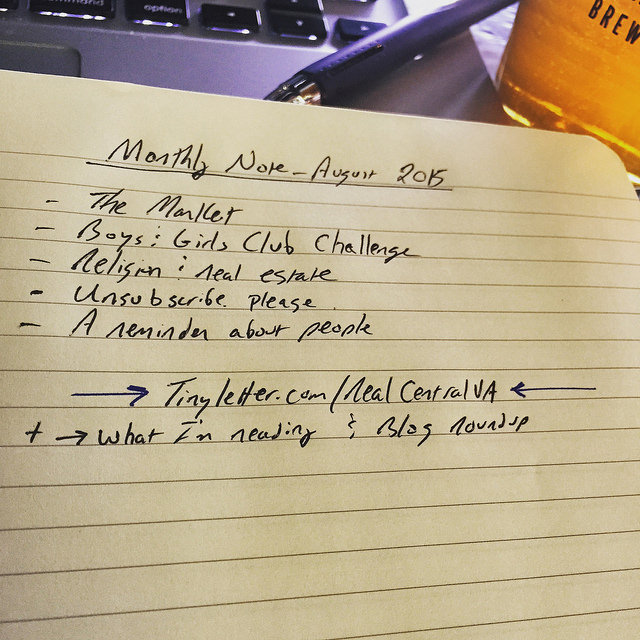 command
option
BREW
Monthly Note - August 2015
- The Market
- Boys & Girls Club Challenge
- Religion & real estate
- Unsubscribe please
- A reminder about people
→ Tinyletter.com/RealCentralVA ←
+ → What I'm reading & Blog roundup